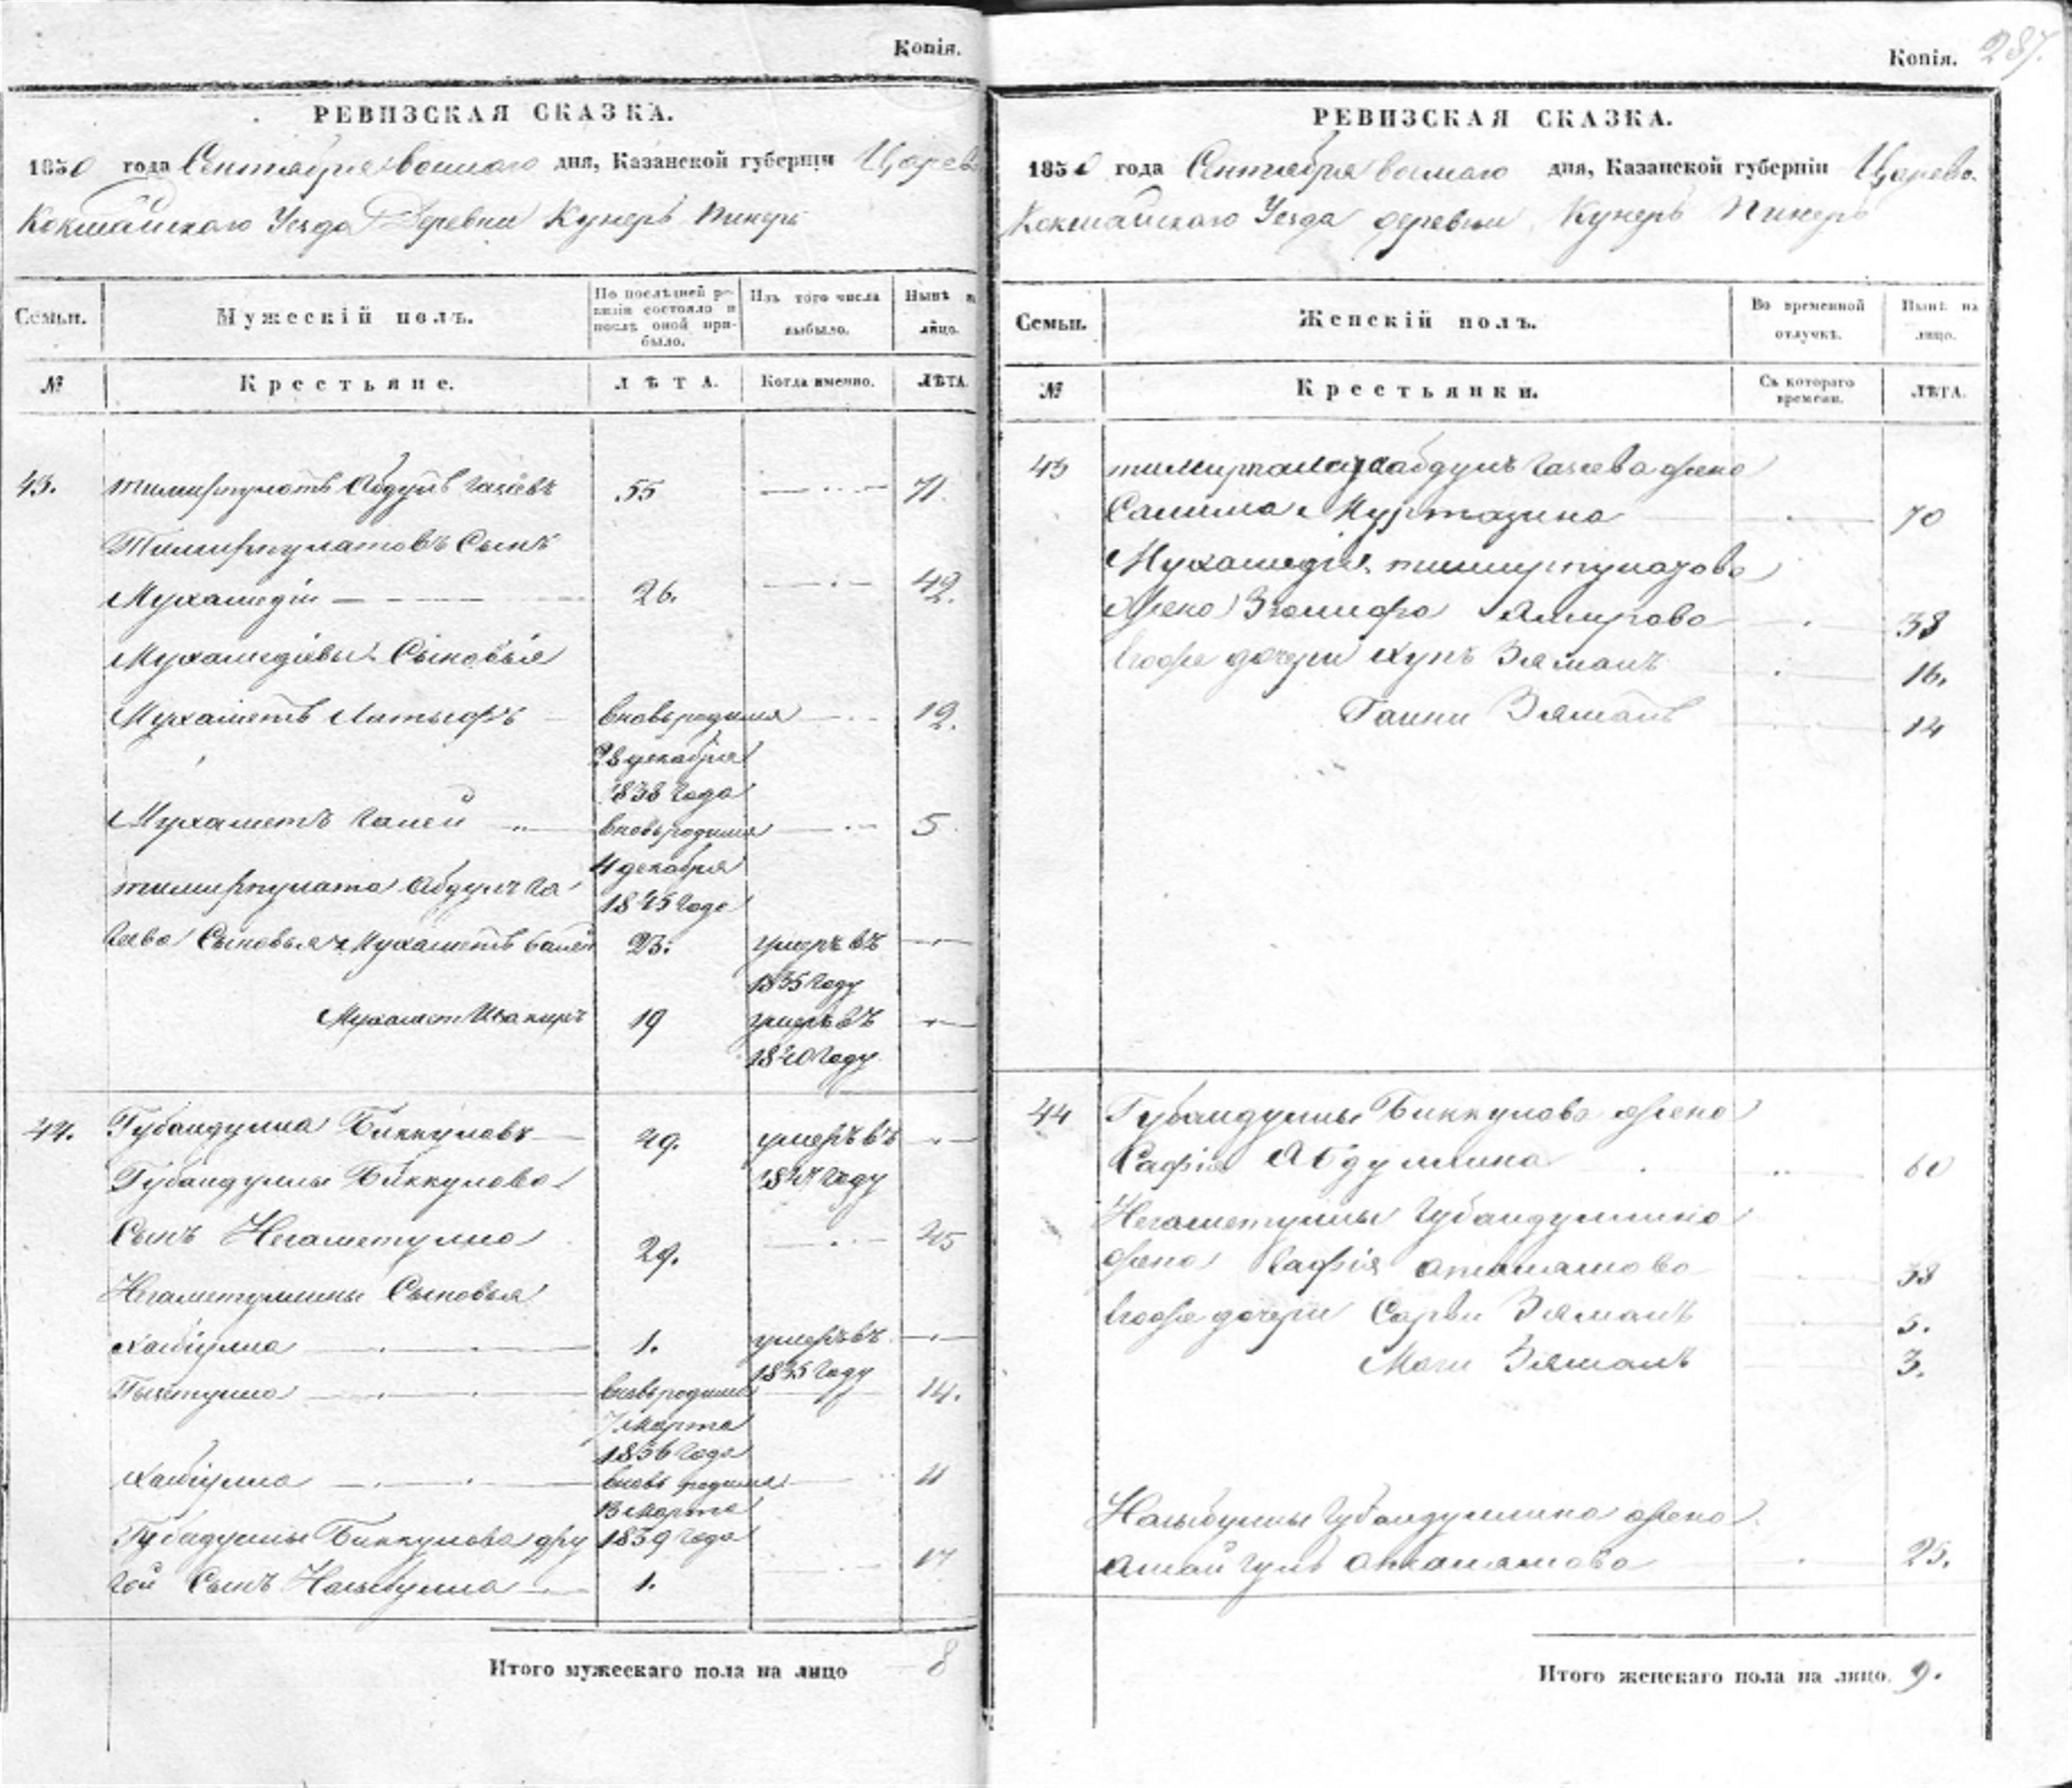 Копія.
РЕВИЗСКАЯ СКАЗКА.
1850 года Сентября восмаго дня, Казанской губерніи Царево
Кокшайскаго Уезда Деревни Кунеръ Пинеръ
Семьи. Мужескій полъ. По послѣдней ревизіи состояло и послѣ оной прибыло. Изъ того числа выбыло. Нынѣ на лицо.
№ Крестьяне. ЛѢТА. Когда именно. ЛѢТА.
43. тимирпулатъ Абдулъ Гагѣевъ 55 71.
Тимирпулатовъ Сынъ
Мухамедіи 26. 42.
Мухамедіевы Сыновья
Мухаметъ Латыфъ вновь родился 12.
28 декабря
1838 года
Мухаметъ Галей вновь родился 5
4 декабря
тимирпулата Абдулъ Га
1845 года
гѣева Сыновья Мухаметъ Галей 23. умеръ въ
1835 году
Мухамет Шакиръ 19 умеръ въ
1840 году
44. Губайдулла Биккуловъ 49. умеръ въ
Губайдуллы Биккулова 1847 году
Сынъ Негаметулла 29. 45
Негаметуллины Сыновья
Хабіулла 1. умеръ въ
1835 году
вновь родился 14.
7 Марта
1836 года
Хабіулла вновь родился 11
13 Марта
Губадуллы Биккулова дру 1839 года
гой Сынъ 1. 17
Итого мужескаго пола на лицо 8
Копія. 287.
РЕВИЗСКАЯ СКАЗКА.
1850 года Сентября восмаго дня, Казанской губерніи Царево.
Кокшайскаго Уезда деревни Кунеръ Пинеръ
Семьи. Женскій полъ. Во временной отлучкѣ. Нынѣ на лицо.
№ Крестьянки. Съ котораго времени. ЛѢТА.
43 абдулъ Гагѣева жена
Салима Муртазина 70
Мухамедія тимирпулатова
жена Зюлифа Амирова 38
Егоже дочери Хупъ Зямалъ 16.
Галии Зямалъ 14
44 Губайдуллы Биккулова жена
Сафія Абдуллина 60
Негаметуллы Губайдуллина
жена Сафія 38
Егоже дочери Сарви Зямалъ 5.
Маги Зямалъ 3.
Губайдуллина жена
25.
Итого женскаго пола на лицо. 9.